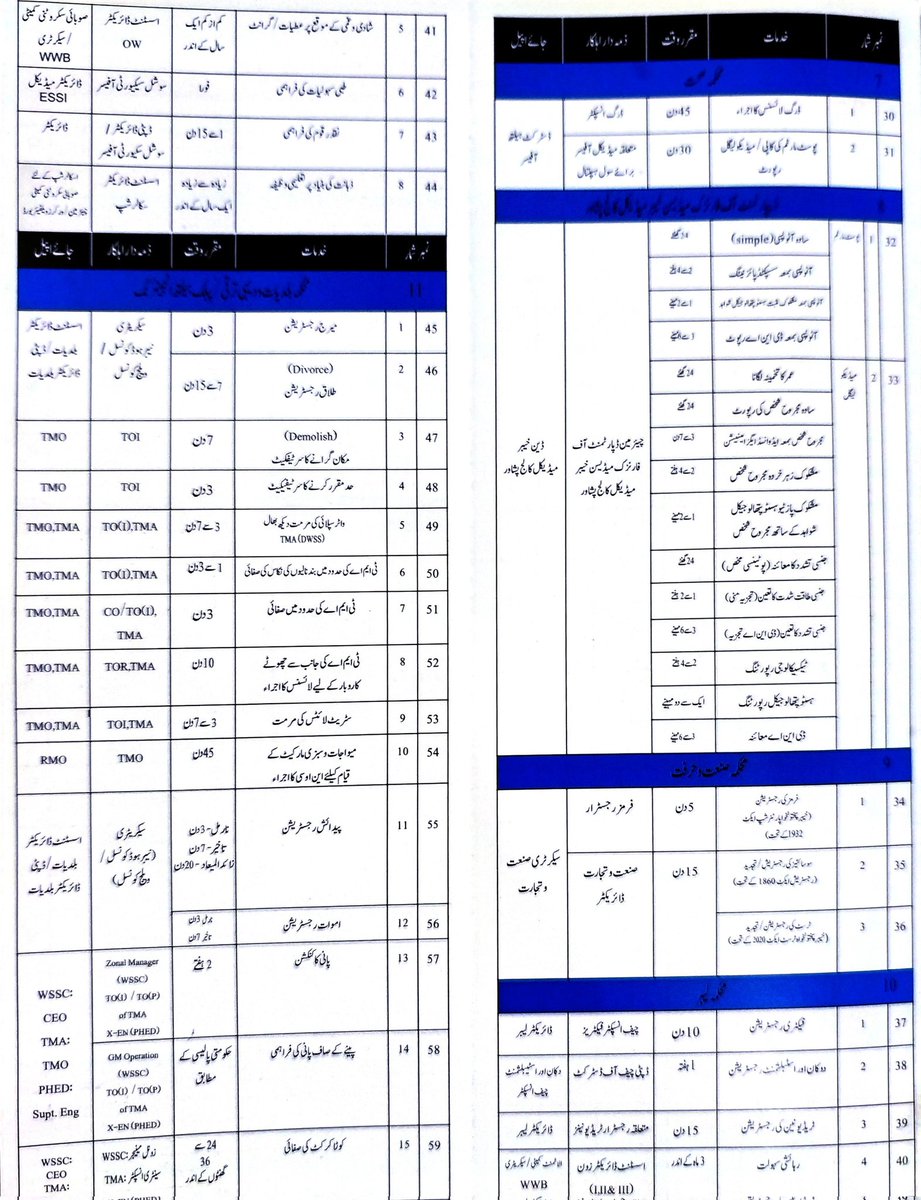 نمبر شمار خدمات مقرر وقت ذمہ دار اہلکار جائے اپیل
7 محکمہ صحت
30 1 ڈرگ لائسنس کا اجراء 45 دن ڈرگ انسپکٹر ڈسٹرکٹ ہیلتھ آفیسر
31 2 پوسٹ مارٹم کی کاپی / میڈیکو لیگل رپورٹ 30 دن متعلقہ میڈیکل آفیسر برائے سول ہسپتال
8 ڈیپارٹمنٹ آف فارنزک میڈیسن خیبر میڈیکل کالج پشاور
32 1 پوسٹ مارٹم سادہ آٹوپسی (simple) 24 گھنٹے چیئرمین ڈیپارٹمنٹ آف فارنزک میڈیسن خیبر میڈیکل کالج پشاور ڈین خیبر میڈیکل کالج پشاور
آٹوپسی بمعہ
آٹوپسی بمعہ مشکوک
آٹوپسی بمعہ ڈی این اے رپورٹ
33 2 میڈیکو لیگل عمر کا تخمینہ لگانا 24 گھنٹے
سادہ مجروح شخص کی رپورٹ 24 گھنٹے
مجروح شخص بمعہ ایڈوانسڈ ایگزامینیشن 3 سے 7 دن
مشکوک زہر خوردہ مجروح شخص 2 سے 4 ہفتے
مشکوک پازیٹیو ہسٹوپتھالوجیکل شواہد کے ساتھ مجروح شخص 1 سے 2 مہینے
جنسی تشدد کا معائنہ (پوٹینسی شخص) 24 گھنٹے
جنسی طاقت شدت کا تعین (تجزیہ منی) 1 سے 2 ہفتے
جنسی تشدد کا تعین (ڈی این اے تجزیہ) 3 سے 6 مہینے
ٹیکسیکالوجی رپورٹنگ 2 سے 4 ہفتے
ہسٹوپتھالوجیکل رپورٹنگ ایک سے دو مہینے
ڈی این اے معائنہ 3 سے 6 مہینے
9 محکمہ صنعت و حرفت
34 1 فرمز کی رجسٹریشن (خیبر پختونخوا پارٹنرشپ ایکٹ 1932 کے تحت) 5 دن فرمز رجسٹرار سیکرٹری صنعت و تجارت
35 2 سوسائٹیز کی رجسٹریشن / تجدید (رجسٹریشن ایکٹ 1860 کے تحت) 15 دن صنعت و تجارت ڈائریکٹر
36 3 ٹرسٹ کی رجسٹریشن / تجدید (خیبر پختونخوا ٹرسٹ ایکٹ 2020 کے تحت)
10 محکمہ لیبر
37 1 فیکٹری رجسٹریشن 10 دن چیف انسپکٹر فیکٹریز ڈائریکٹر لیبر
38 2 دوکان اور اسٹیبلشمنٹ رجسٹریشن 1 ہفتہ ڈپٹی چیف آف ڈسٹرکٹ دوکان اور اسٹیبلشمنٹ چیف انسپکٹر
39 3 ٹریڈ یونین کی رجسٹریشن 15 دن متعلقہ رجسٹرار ٹریڈ یونینز ڈائریکٹر لیبر
40 4 رہائشی سہولت 3 ماہ کے اندر اسسٹنٹ ڈائریکٹر زون (I,II& III) الاٹمنٹ کمیٹی / سیکریٹری WWB
41 5 شادی و غمی کے موقع پر عطیات / گرانٹ کم از کم ایک سال کے اندر اسسٹنٹ ڈائریکٹر OW صوبائی سکروٹنی کمیٹی / سیکرٹری WWB
42 6 طبی سہولیات کی فراہمی فورا سوشل سیکیورٹی آفیسر ڈائریکٹر میڈیکل ESSI
43 7 نقد رقوم کی فراہمی 1 سے 15 دن ڈپٹی ڈائریکٹر / سوشل سکیورٹی آفیسر ڈائریکٹر
44 8 ذہانت کی بنیاد پر تعلیمی وظیفہ زیادہ سے زیادہ ایک سال کے اندر اسسٹنٹ ڈائریکٹر سکالر شپ اسکالرشپ کے لئے صوبائی سکروٹنی کمیٹی
نمبر شمار خدمات مقرر وقت ذمہ دار اہلکار جائے اپیل
11 محکمہ بلدیات و دیہی ترقی / پبلک ہیلتھ انجینئرنگ
45 1 میرج رجسٹریشن 3 دن سیکریٹری نیبر ہوڈ کونسل / ویلج کونسل اسسٹنٹ ڈائریکٹر بلدیات / ڈپٹی ڈائریکٹر بلدیات
46 2 (Divorce) طلاق رجسٹریشن 7 سے 15 دن
47 3 (Demolish) مکان گرانے کا سرٹیفکیٹ 7 دن TOI TMO
48 4 حد مقرر کرنے کا سرٹیفیکیٹ 3 دن TOI TMO
49 5 واٹر سپلائی کی مرمت دیکھ بھال TMA (DWSS) 3 سے 7 دن TO(I),TMA TMO,TMA
50 6 ٹی ایم اے کی حدود میں بند نالیوں کی نکاس کی صفائی 1 سے 3 دن TO(I),TMA TMO,TMA
51 7 ٹی ایم اے کی حدود میں صفائی 3 دن CO/TO(I), TMA TMO,TMA
52 8 ٹی ایم اے کی جانب سے چھوٹے کاروبار کے لیے لائسنس کا اجراء 10 دن TOR,TMA TMO,TMA
53 9 سٹریٹ لائٹس کی مرمت 3 سے 7 دن TOI,TMA TMO,TMA
54 10 میواجات و سبزی مارکیٹ کے قیام کیلئے این او سی کا اجراء 45 دن TMO RMO
55 11 پیدائش رجسٹریشن نارمل - 3 دن تاخیر - 7 دن زائد المیعاد - 20 دن سیکریٹری (نیبر ہوڈ کونسل / ویلج کونسل) اسسٹنٹ ڈائریکٹر بلدیات / ڈپٹی ڈائریکٹر بلدیات
56 12 اموات رجسٹریشن نارمل 3 دن تاخیر 7 دن
57 13 پانی کا کنکشن 2 ہفتے Zonal Manager (WSSC) TO(I) / TO(P) of TMA X-EN (PHED) WSSC: CEO TMA: TMO PHED: Supt. Eng
58 14 پینے کے صاف پانی کی فراہمی حکومتی پالیسی کے مطابق GM Operation (WSSC) TO(I) / TO(P) of TMA X-EN (PHED)
59 15 کوڑا کرکٹ کی صفائی 24 سے 36 گھنٹوں کے اندر زونل منیجر: WSSC سینٹری انسپکٹر: TMA X-EN (PHED) WSSC: CEO TMA: